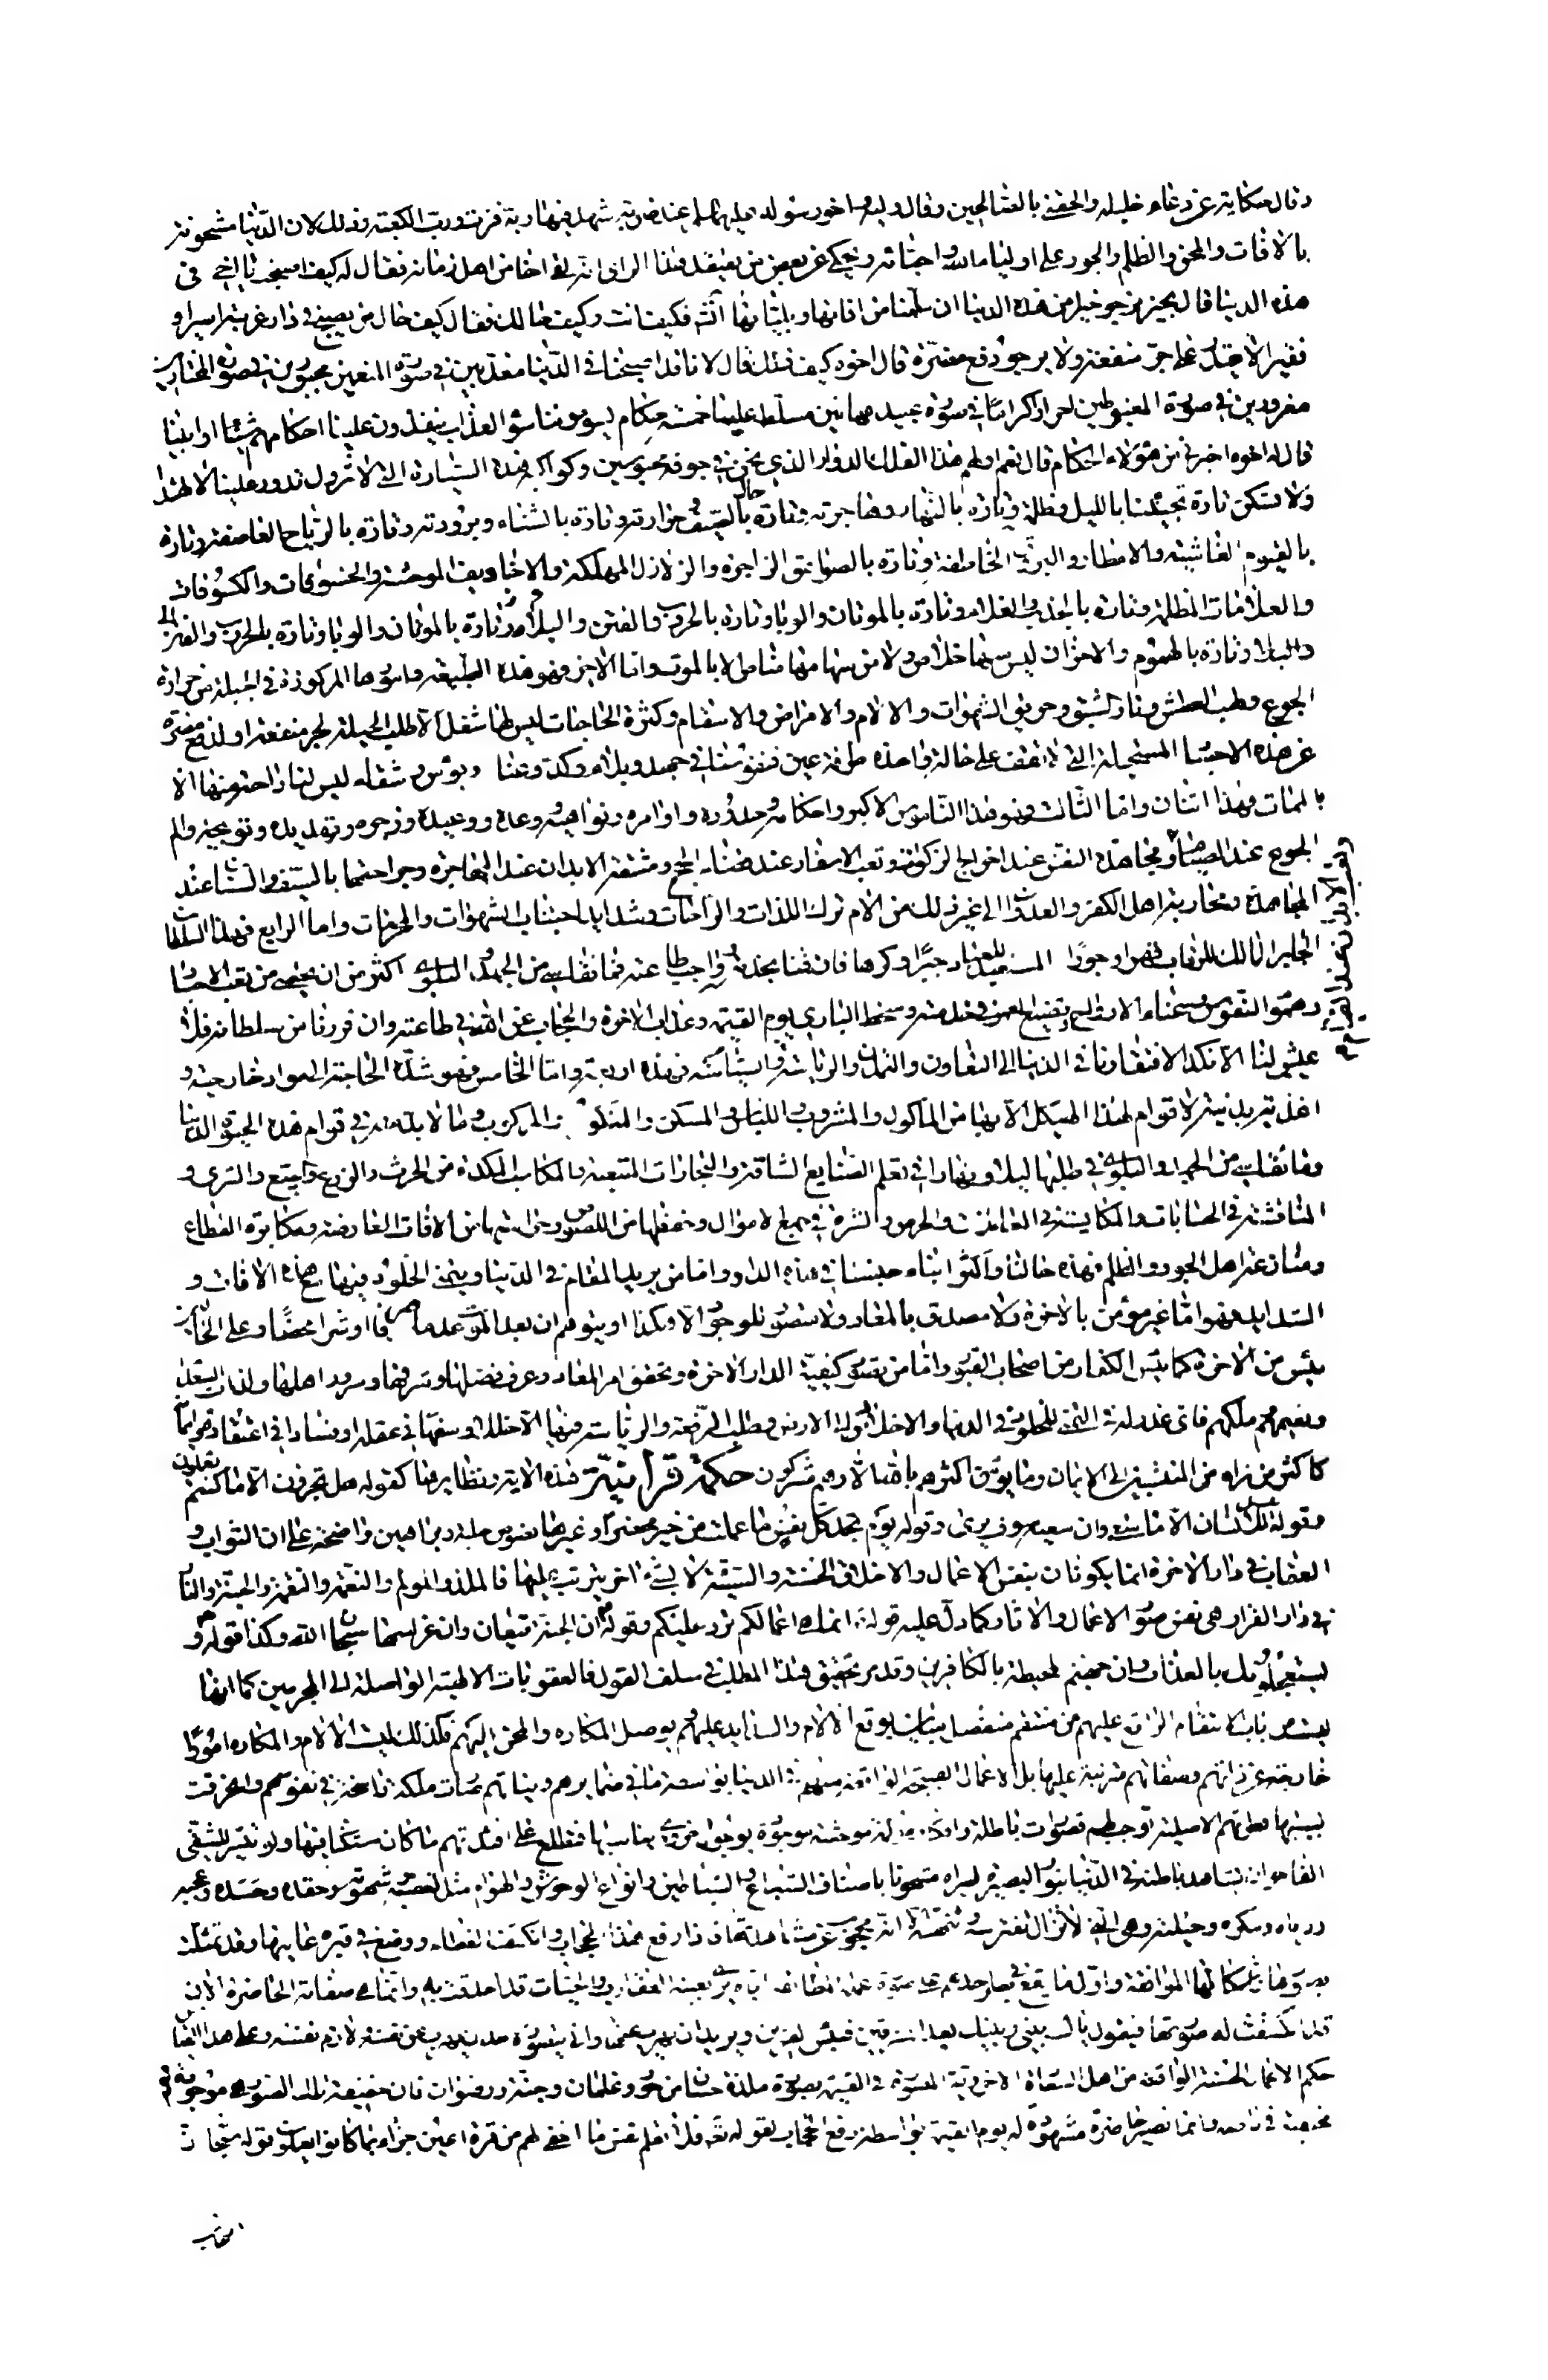 وقال حكاية عن دعاء خليله والحقني بالصالحين وقال وليه واخو رسوله عليهما السلم عند ضربة شهد فيها ربه فزت ورب الكعبة وذلك لان الدنيا مشحونة
بالافات والمحن والظلم والجور على اولياء الله واحبائه ويحكى عن بعض من يعتقد هذا الراى انه لقى اخا من اهل زمانه فقال له كيف اصبحت يا اخى فى
هذه الدنيا قال بخير نرجو خيرا من هذه الدنيا ان سلمنا من افاتها وبلياتها فكيف انت وكيف حالك فقال كيف حال من يصبح فى دار غربة اسيرا و
فقيرا لا يقدر على جر منفعة ولا يرجو دفع مضرة قال اخوه كيف ذلك قال لانا قد اصبحنا فى الدنيا معذبين فى صورة المنعمين مجبورين فى صورة المختارين
مغرورين فى صورة المغبوطين احرار كراما فى صورة عبيد مهانين مسلط علينا خمسة حكام يسومونا سوء العذاب ينفذون علينا احكامهم شئنا او ابينا
قال له اخوه اخبرنى من هؤلاء الحكام قال نعم اولهم هذا الفلك الدوار الذي نحن فى جوفه محبوسين وكواكبه هذه السيارة التى لا تزول تدور علينا لا تهدا
ولا تسكن تارة تجيئنا بالليل وظلمته وتارة بالنهار وهاجرته وتارة بالصيف وحرارته وتارة بالشتاء وبرودته وتارة بالرياح العاصفة وتارة
بالغيوم الغاشية والامطار والبرق الخاطفة وتارة بالصواعق الزاجرة والزلازل المهلكة والاخاويف الموحشة والخسوفات والكسوفات
والعلامات المظلمة وتارة بالجدب والغلاء وتارة بالموتان والوبا وتارة بالحروب والفتن والبلاء وتارة بالموتان والوبا وتارة بالحروب والفتن
والبلاء وتارة بالهموم والاحزان ليس منها خلاص ولا من منها مناص الا بالموت واما الاخر فهو هذه الطبيعة وامورها المركوزة فى الجبلة من حرارة
الجوع ولهب العطش ونار الشبق وحريق الشهوات والالام والامراض والاسقام وكثرة الحاجات ليس لها شغل الا طلب الحيلة لجر منفعة او لدفع مضرة
عن هذه الاجساد المستحيلة التى لا تقف على حالة واحدة طرفة عين فنفوسنا فى جهد وبلاء وكد وعنا وبؤس وشقاء ليس لنا راحة منها الا
بالممات فهذا اثنان واما الثالث فهو هذا الناموس الاكبر واحكامه وحدوده واوامره ونواهيه ووعده ووعيده وزجره وتهديده وتوبيخه والم
الجوع عند الصيام ومجاهدة النفس عند اخراج الزكوة وتعب الاسفار عند قضاء الحج ومشقة الابدان عند الهاجرة وجراحتها بالسيف والسنان عند
المجاهدة ومحاربة اهل الكفر والعدوان الى غير ذلك من الام ترك اللذات والراحات وشدايد اجتناب الشهوات والمحرمات واما الرابع فهذا السلطان
الجاير المالك للرقاب قهرا وجورا المستعبد للعباد جبرا وكرها فان قمنا بخدمته وواجب طاعته فما نقاسى من الجهد والبلوى اكثر من ان يحصى من تعب الاجساد
وهموم النفوس وعناء الارواح وتضييع العمر فى خدمته وسخط البارى يوم القيمة وعذاب الاخرة والحجاب عن الله فى طاعته وان فررنا من سلطانه فلا
عيش لنا الا نكدا لافتقارنا فى الدنيا الى التعاون والتمدن والرياسة والسياسة فهذه اربعة واما الخامس فهو شدة الحاجة الى مواد خارجية و
اغذية بدنية لا قوام لهذا الهيكل الا بها من المأكول والمشروب واللباس والمسكن والمنكوح والمركوب وما لا بد منه فى قوام هذه الحيوة الدنيا
وما نقاسى من الجهد والبلوى فى طلبها ليلا ونهارا فى تعلم الصنايع الشاقة والتجارات المتعبة والمكاسب المكدة من الحرث والزرع والبيع والشرى و
المناقشة فى الحسابات والمكايسة فى المعاملات والحرص والشره فى جمع الاموال وحفظها من اللصوص وحراستها من الافات العارضة ومكابرة القطاع
ومنازعة اهل الجور والظلم فهذه حالنا واكثر ابناء جنسنا فى هذه الدار واما من يريد المقام فى الدنيا ويتمنى الخلود فيها مع هذه الافات و
الشدايد فهو اما غير مؤمن بالاخرة ولا مصدق بالمعاد ولا متصور للوجود الا هكذا او يتوهم ان بعد الموت عدما صرفا او شرا محضا وعلى الحالين
يئس من الاخرة كما يئس الكفار من اصحاب القبور واما من تصور كيفية الدار الاخرة وتحقق امر المعاد وعرف فضلها وشرفها وسرور اهلها ولذات السعداء
ونعيمهم وملكهم فاى عذر له فى التمنى للخلود فى الدنيا والاخلاد الى الارض وطلب الرفعة والرياسة فيها الا خللا وسفها فى عقله او فسادا فى اعتقاده وايمانه
كاكثر من نراه من المنتسبين الى الايمان وما يؤمن اكثرهم بالله الا وهم مشركون حكمة قرآنية هذه الاية ونظايرها كقوله هل تجزون الا ما كنتم تعملون
وقوله ليس للانسان الا ما سعى وان سعيه سوف يرى وقوله يوم تجد كل نفس ما عملت من خير محضرا وغيرها نصوص جلية وبراهين واضحة على ان الثواب و
العقاب فى دار الاخرة انما يكونان بنفس الاعمال والاخلاق الحسنة والسيئة لا بشىء اخر يترتب عليها فالملذ والمولم والنعمة والنقمة والجنة والنار
فى دار القرار هى نفس صور الاعمال والاثار كما دل عليه قوله انما هى اعمالكم ترد عليكم وقوله ان الجنة قيعان وان غراسها سبحان الله وكذا قوله و
يستعجلونك بالعذاب وان جهنم لمحيطة بالكافرين وقد مر تحقيق هذا المطلب فى سلف القول فالعقوبات الالهية الواصلة الى المجرمين كما انها
ليست من باب الانتقام الواقع عليهم من منتقم منفصل مباين يوقع الالام والشدايد عليهم ويوصل المكاره والمحن اليهم فكذلك ليست الالام والمكاره امورا
خارجة عن ذاتهم وصفاتهم مترتبة عليها بل الاعمال القبيحة الواقعة منهم فى الدنيا بواسطة ما فى ضمايرهم ونياتهم صارت ملكة راسخة فى نفوسهم وانحرفت
بسببها فطرتهم الاصلية وتصورات باطلة موحشة موجودة بوجود اخروى يناسبها فتطلع على افئدتهم ما كان مستكنا فيها ولو تيسر للشقى
الفاجر ان يشاهد باطنه فى الدنيا بنور البصيرة ليراه مشحونا باصناف السباع والشياطين وانواع الوحوش والهوام مثل غضبه وشهوته وحقده وحسده وعجبه
وريائه ومكره وحيلته وهى التى لا تزال تفترسه وتنهشه الا انه محجوب عن مشاهدتها فاذا رفع هذا الحجاب وانكشف الغطاء ووضع فى قبره عاينها وقد تمثلت
بصورها واشكالها الموافقة واول ما يقع بصر احدهم على صورة عمله يرى بعينه العقارب والحيات قد احدقت به وانما هى صفاته الحاضرة الان
قد انكشفت له صورتها فيقول يا ليت بينى وبينك بعد المشرقين فبئس القرين ويريد ان يهرب عنها وانى يتصور عن نفسه لازم نفسه وعلى هذا القياس
حكم الاعمال الحسنة الواقعة من اهل السعادة الاخروية المصورة فى القيمة بصورة ملذة حسان من حور وغلمان وجنة ورضوان فان حقيقة تلك الصور موجودة
فى ذاته وانما تصير حاضرة مشهودة له يوم القيمة بواسطة رفع الحجاب لقوله تعالى فلا تعلم نفس ما اخفى لهم من قرة اعين جزاء بما كانوا يعملون